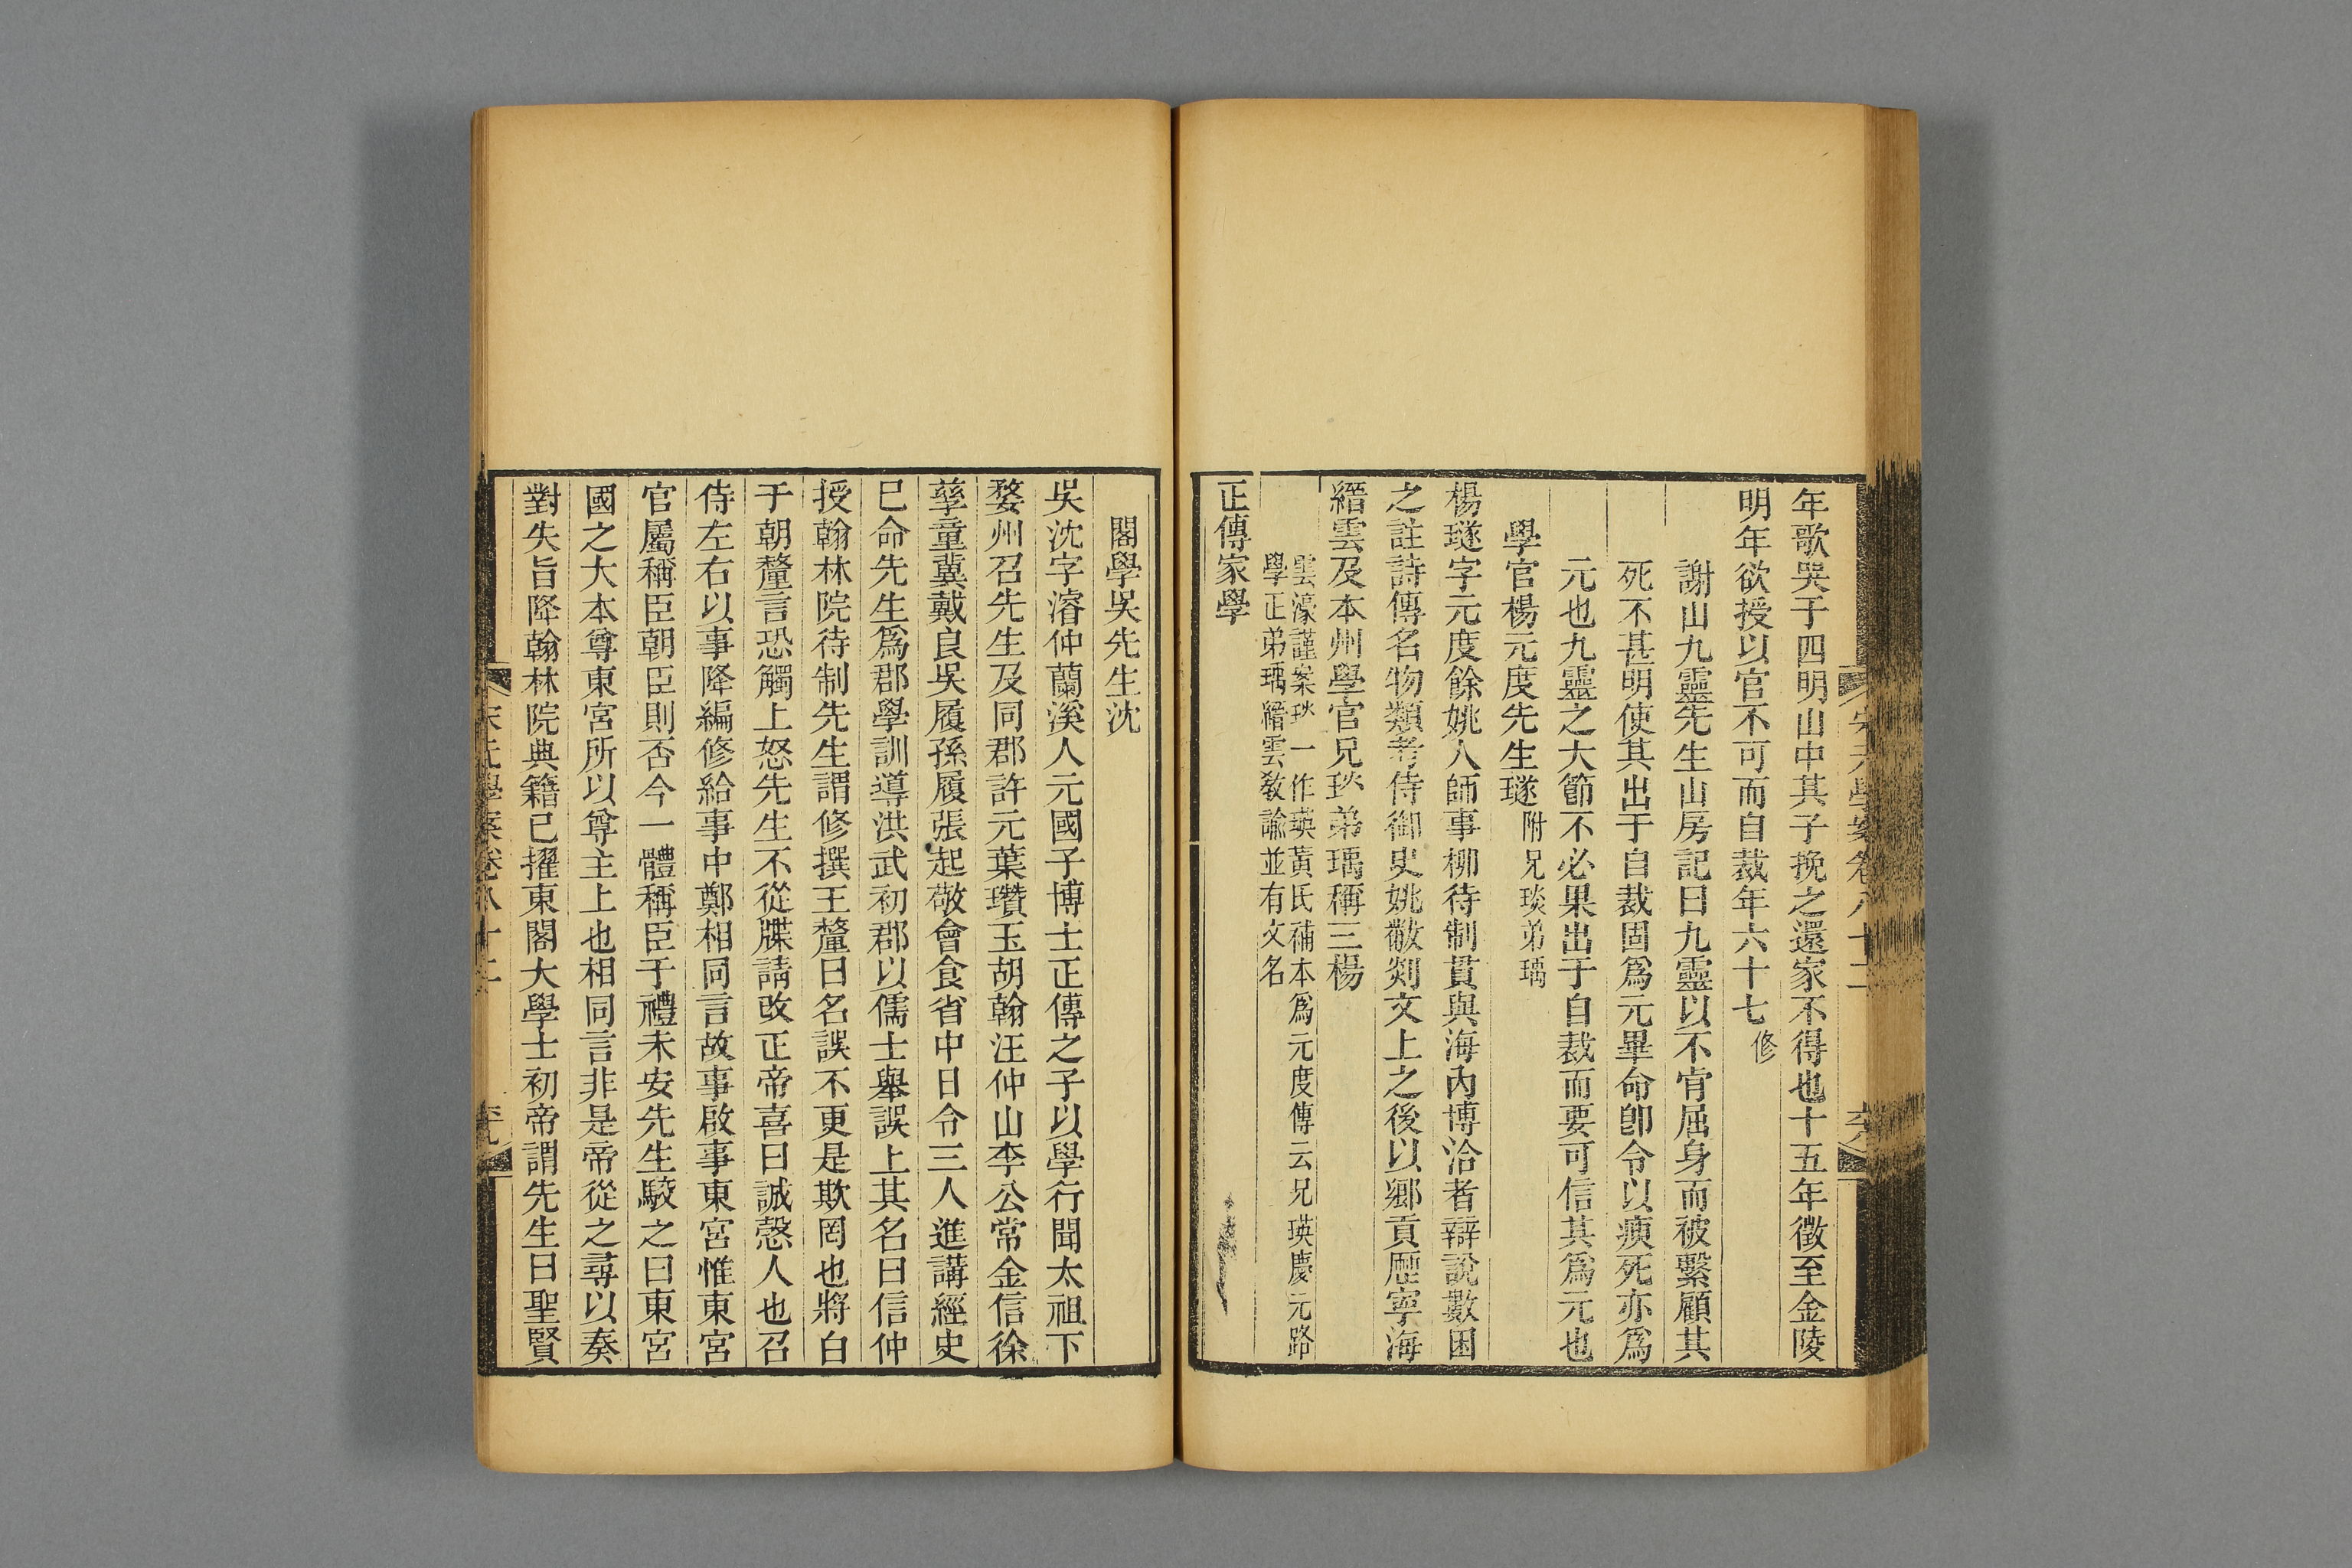 年歌哭于四明山中其子挽之還家不得也十五年徵至金陵
明年欲授以官不可而自裁年六十七修
謝山九靈先生山房記曰九靈以不肯屈身而被繫顧其
死不甚明使其出于自裁固爲元畢命卽令以瘐死亦爲
元也九靈之大節不必果出于自裁而要可信其爲元也
學官楊元度先生璲附兄琰弟瑀
楊璲字元度餘姚人師事柳待制貫與海內博洽者辯說數困
之註詩傳名物類考侍御史姚黻剡文上之後以鄉貢歷寧海
縉雲及本州學官兄琰弟瑀稱三楊
雲濠謹案琰一作瑛黃氏補本爲元度傳云兄瑛慶元路
學正弟瑀縉雲敎諭並有文名
正傳家學
閣學吳先生沈
吳沈字濬仲蘭溪人元國子博士正傳之子以學行聞太祖下
婺州召先生及同郡許元葉瓚玉胡翰汪仲山李公常金信徐
孳童冀戴良吳履孫履張起敬會食省中日令三人進講經史
已命先生爲郡學訓導洪武初郡以儒士舉誤上其名曰信仲
授翰林院待制先生謂修撰王釐曰名誤不更是欺罔也將白
于朝釐言恐觸上怒先生不從牒請改正帝喜曰誠愨人也召
侍左右以事降編修給事中鄭相同言故事啟事東宮惟東宮
官屬稱臣朝臣則否今一體稱臣于禮未安先生駮之曰東宮
國之大本尊東宮所以尊主上也相同言非是帝從之尋以奏
對失旨降翰林院典籍已擢東閣大學士初帝謂先生曰聖賢
宋元學案卷八十二